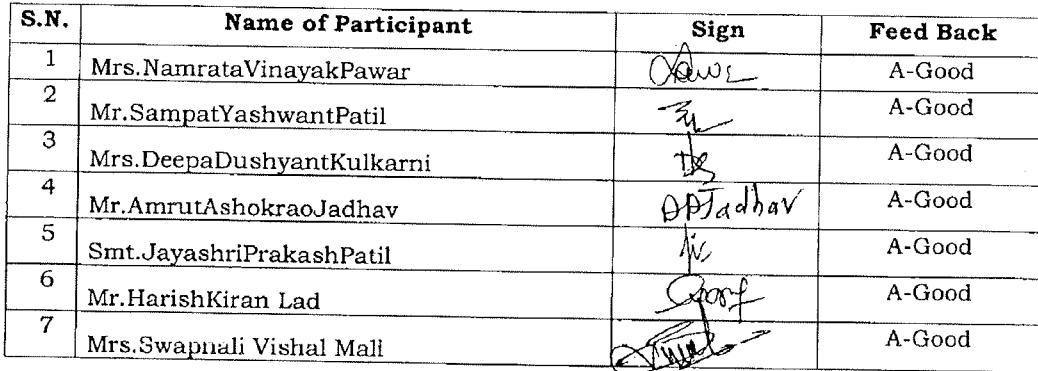 S.N. Name of Participant Sign Feed Back
1 Mrs.NamrataVinayakPawar A-Good
2 Mr.SampatYashwantPatil A-Good
3 Mrs.DeepaDushyantKulkarni A-Good
4 Mr.AmrutAshokraoJadhav AAJadhav A-Good
5 Smt.JayashriPrakashPatil A-Good
6 Mr.HarishKiran Lad A-Good
7 Mrs.Swapnali Vishal Mali A-Good